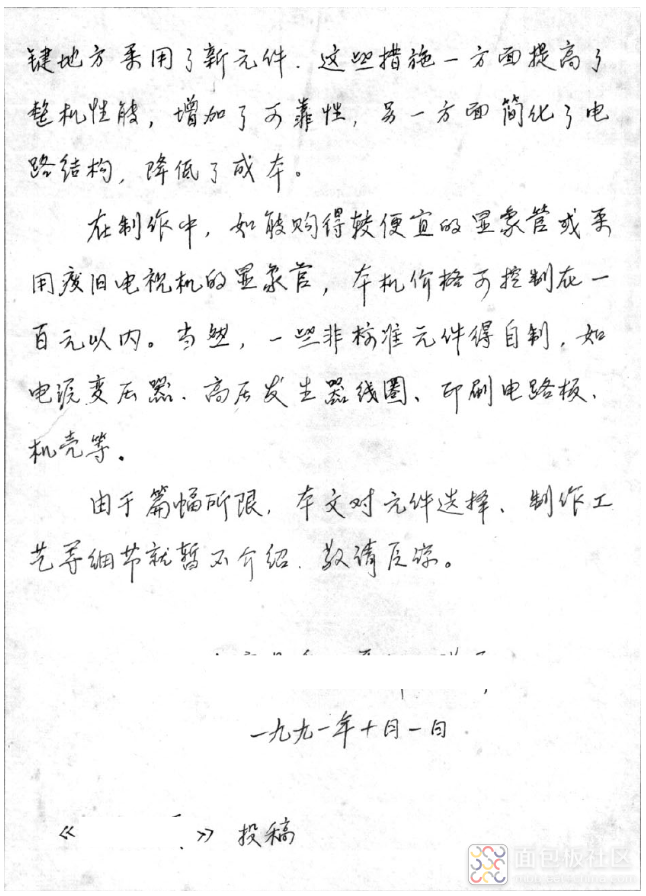 键地方采用了新元件.这些措施一方面提高了
整机性能,增加了可靠性,另一方面简化了电
路结构,降低了成本。
在制作中,如能购得较便宜的显象管或采
用废旧电视机的显象管,本机价格可控制在一
百元以内。当然,一些非标准元件得自制,如
电源变压器、高压发生器线圈、印刷电路板、
机壳等。
由于篇幅所限,本文对元件选择、制作工
艺等细节就暂不介绍.敬请原谅。
一九九一年十月一日
《 》投稿
面包板社区